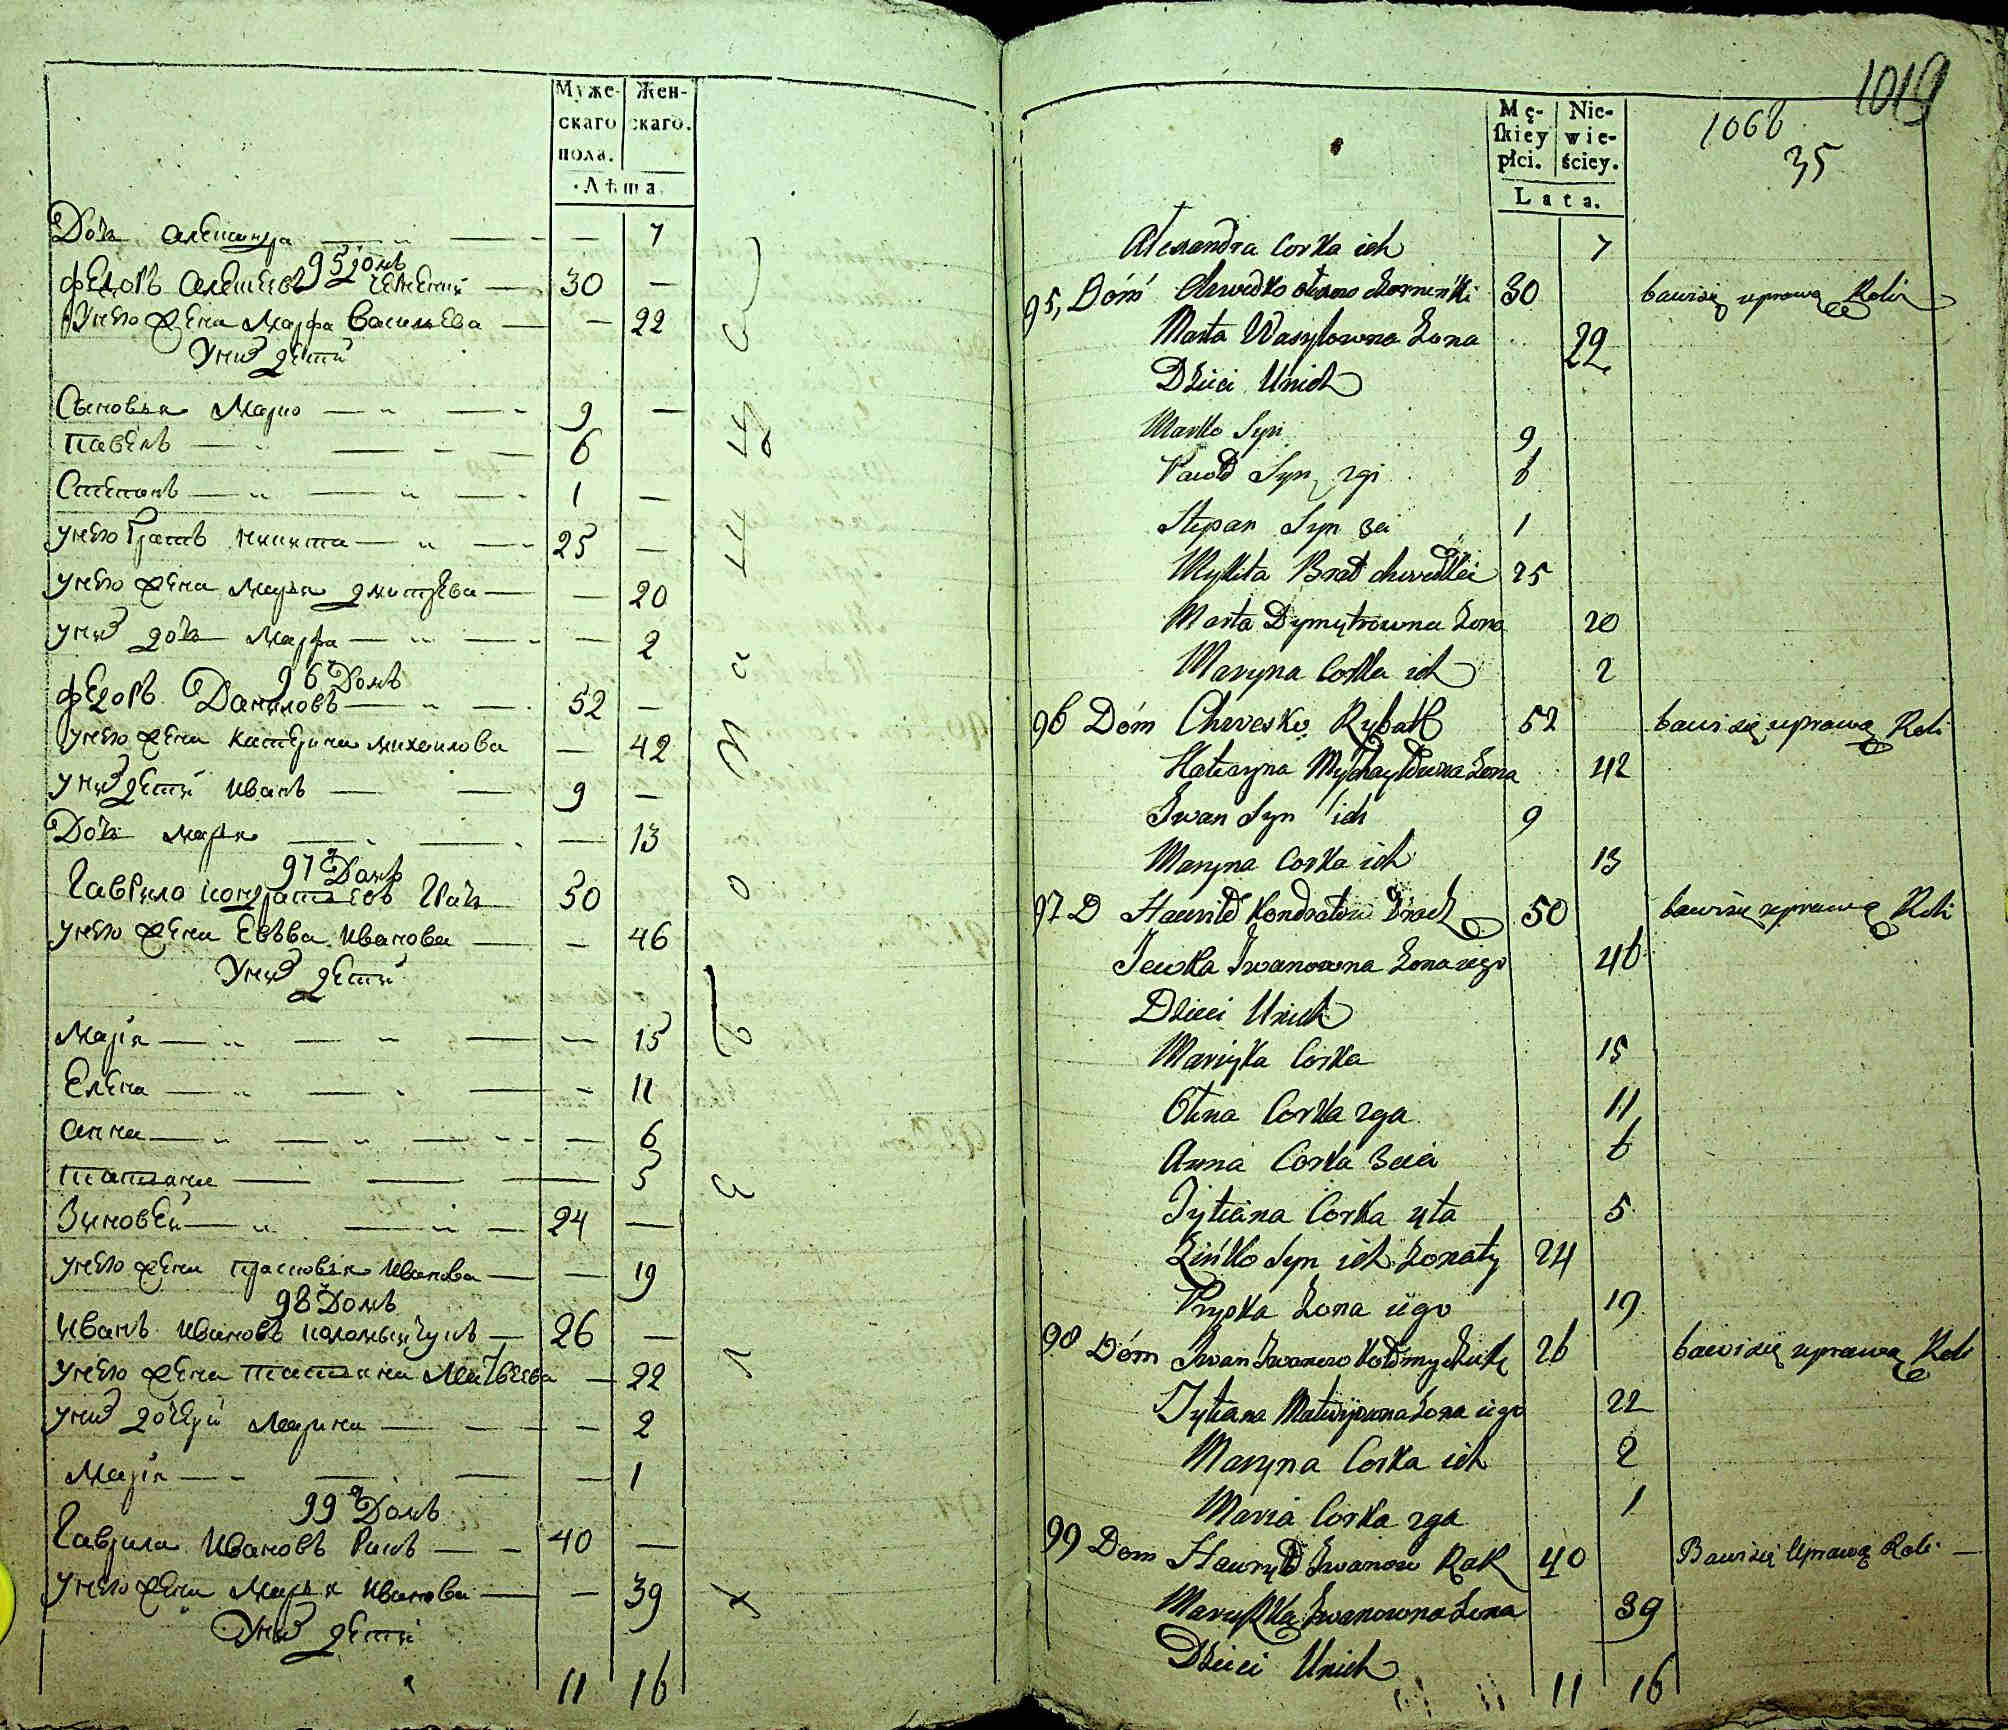 Муже-
скаго
пола.
Жен-
скаго.
Лѣта.
Дочь Александра 7
95 домъ
Федоръ Алексеевъ 30
У него жена Марфа Васильева 22
У них дети
Сыновья Марко 9
Павелъ 6
Степанъ 1
У него братъ Никита 25
У него жена Марья Дмитрева 20
У них дочь Марфа 2
96 Домъ
Федоръ Даниловъ 52
У него жена Катерина Михаилова 42
У них дети Иванъ 9
Дочь Марья 13
97 Домъ
Гаврило Кондратьевъ 50
У него жена Евва Иванова 46
У них дети
Марiя 15
Елена 11
Анна 6
Татьяна 5
Зиновей 24
У него жена Прасковья Иванова 19
98 Домъ
Иванъ Ивановъ Коломыйчукъ 26
У него жена Татьяна Матвеева 22
У них дочери Марина 2
Марiя 1
99 Домъ
Гаврила Ивановъ Ракъ 40
У него жена Марья Иванова 39
У них дети
11 16
1019
1066
35
Mę-
skiey
płci.
Nie-
wie-
ściey.
Lata.
Alexandra Corka ich 7
95, Dóm Chwedko 30 bawi się uprawą Roli
Marta Wasylowna Zona 22
Dzieci Unich
Marko Syn 9
Paweł Syn 2gi 6
Stepan Syn 3ci 1
Mykita Brat Chwedki 25
Marta Dymytrowna Zona 20
Maryna Corka ich 2
96 Dóm Chwesko Rybak 52 bawi się uprawą Roli
Katarzyna Mychayłowna Zona 42
Iwan Syn ich 9
Maryna Corka ich 13
97 D Hawrił Kondratow 50 bawi się uprawą Roli
Jewka Iwanowna Zona iego 46
Dzieci Unich
Maryka Corka 15
Olena Corka 2ga 11
Anna Corka 3cia 6
Tytiana Corka 4ta 5
Zińko Syn ich Zonaty 24
Pryska Zona iego 19
98 Dóm Iwan Iwanow Kołomyczuk 26 bawi się uprawą Roli
Tytiana Matwijowna Zona iego 22
Maryna Corka ich 2
Maria Corka 2ga 1
99 Dom Hawrył Iwanow Rak 40 Bawi się Uprawą Roli
Maryska Iwanowna Zona 39
Dzieci Unich
11 16